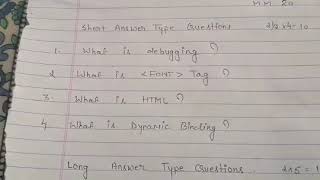 M M 20
Short Answer Type Questions 2½x4=10
1. What is debugging ?
2 What is <FONT> Tag ?
3. What is HTML ?
4. What is Dynamic Binding ?
Long Answer Type Questions 2x5=1